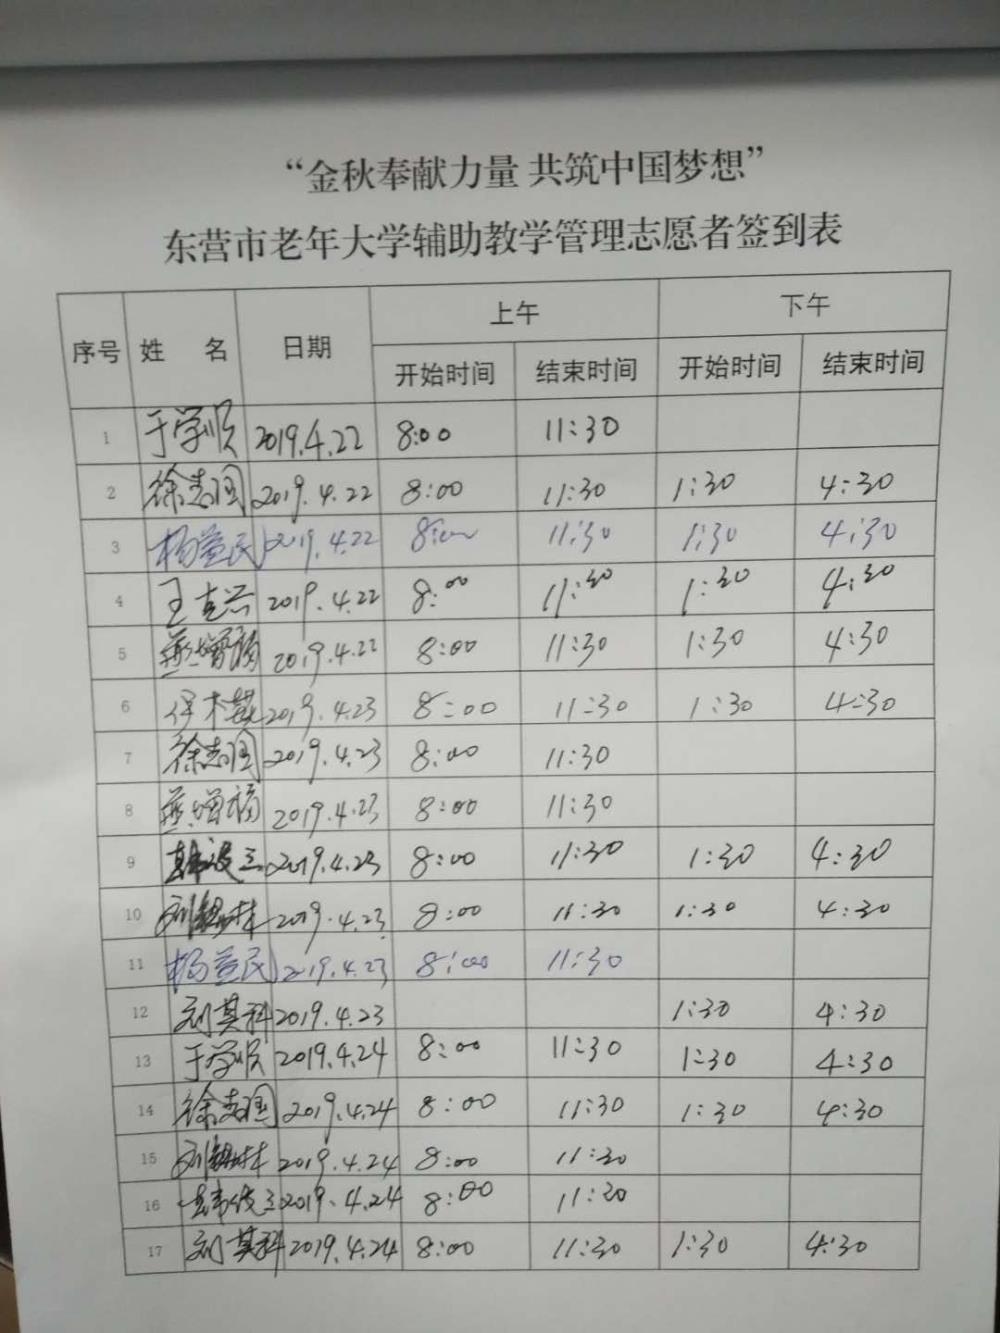 “金秋奉献力量 共筑中国梦想”
东营市老年大学辅助教学管理志愿者签到表
序号 姓 名 日期 上午 下午
开始时间 结束时间 开始时间 结束时间
1 于学顺 2019.4.22 8:00 11:30
2 徐志国 2019.4.22 8:00 11:30 1:30 4:30
3 杨益民 2019.4.22 8:00 11:30 1:30 4:30
4 王克兴 2019.4.22 8:00 11:30 1:30 4:30
5 燕增福 2019.4.22 8:00 11:30 1:30 4:30
6 2019.4.23 8:00 11:30 1:30 4:30
7 徐志国 2019.4.23 8:00 11:30
8 燕增福 2019.4.23 8:00 11:30
9 2019.4.23 8:00 11:30 1:30 4:30
10 2019.4.23 8:00 11:30 1:30 4:30
11 杨益民 2019.4.23 8:00 11:30
12 刘其科 2019.4.23 1:30 4:30
13 于学顺 2019.4.24 8:00 11:30 1:30 4:30
14 徐志国 2019.4.24 8:00 11:30 1:30 4:30
15 2019.4.24 8:00 11:30
16 2019.4.24 8:00 11:30
17 刘其科 2019.4.24 8:00 11:30 1:30 4:30